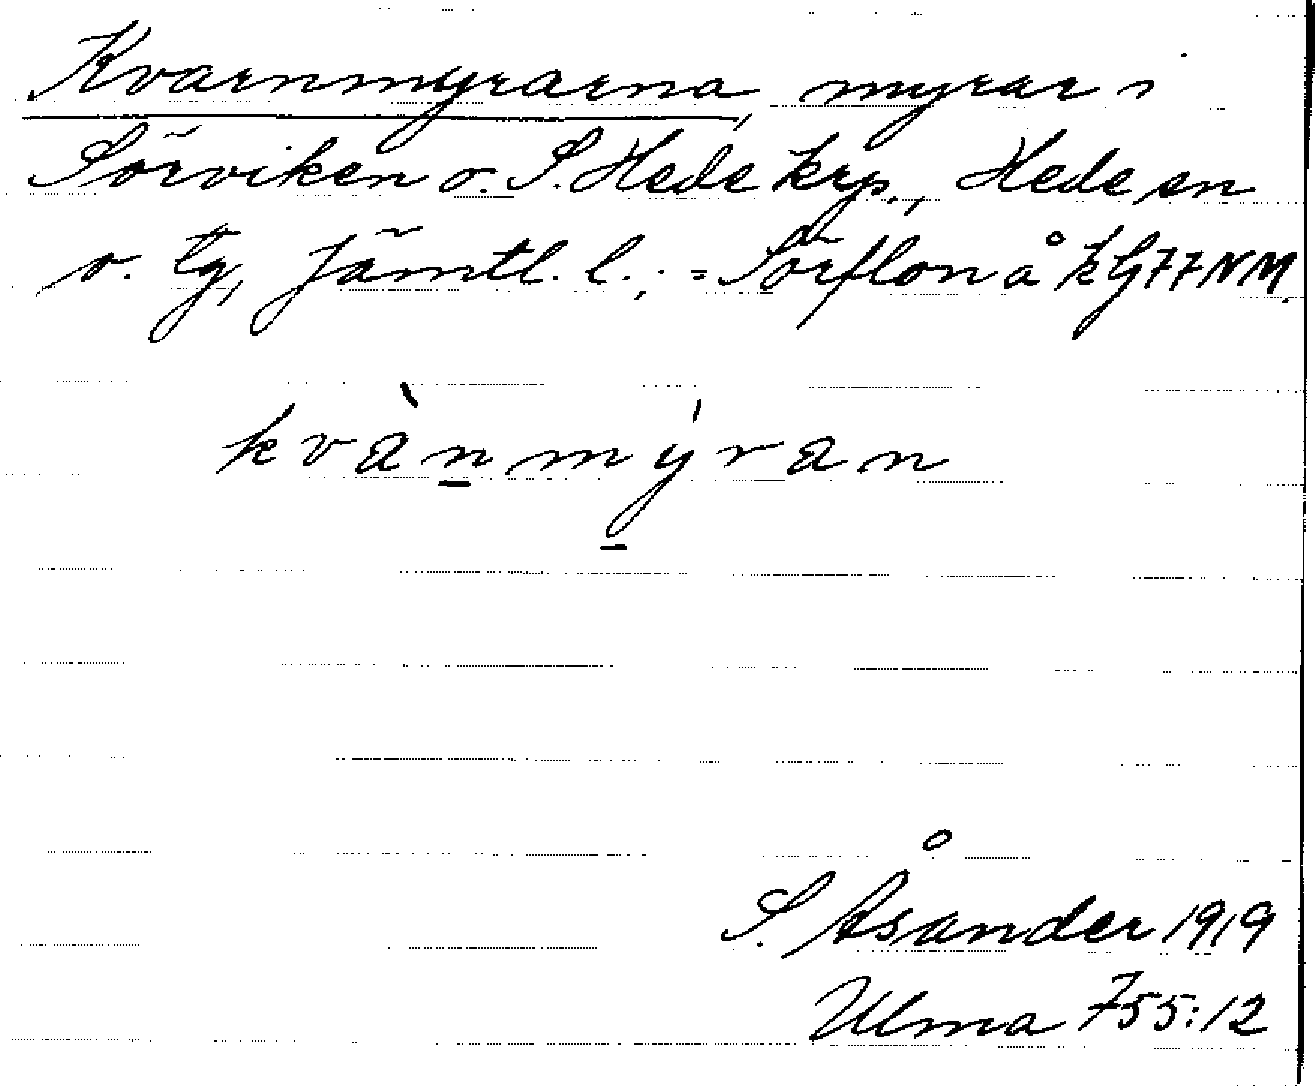 Kvarnmyrarna, myrar i
Sörviken o. S. Hede krp., Hede sn
o. tg, Jämtl. l.; = Sörflon å kG77NM.
kvànmýran
S. Åsander 1919
Ulma 755:12